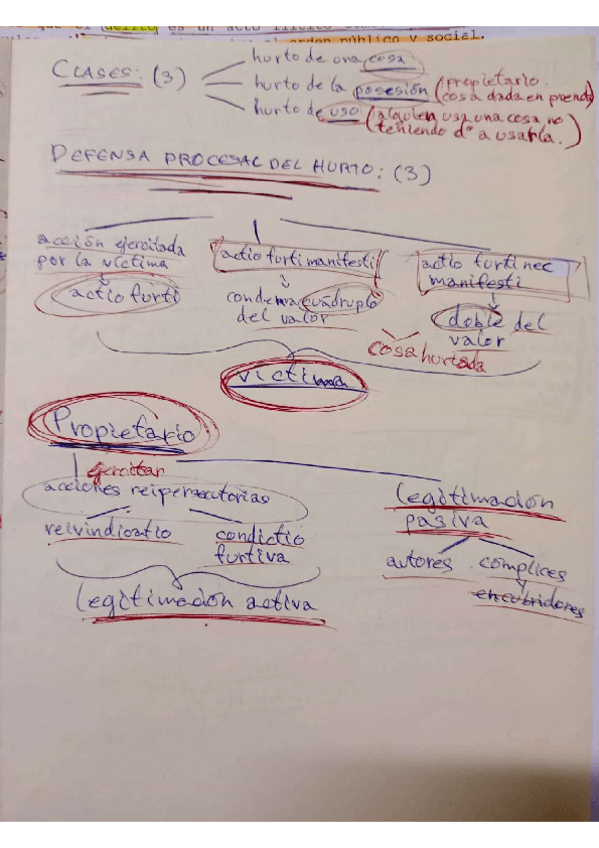 que el delito es un acto ilícito
el orden público y social.
CLASES: (3)
hurto de una cosa
hurto de la posesión (propietario.
cosa dada en prenda)
hurto de uso (alguien usa una cosa no
teniendo dº a usarla.)
DEFENSA PROCESAL DEL HURTO: (3)
acción ejercitada
por la víctima
actio furti
actio furti manifesti
condena cuádruplo
del valor
actio furti nec
manifesti
doble del
valor
cosa hurtada
víctima
Propietario
ejercitar
acciones reipersecutorias
reivindicatio
condictio
furtiva
legitimación activa
legitimación
pasiva
autores
complices
encubridores